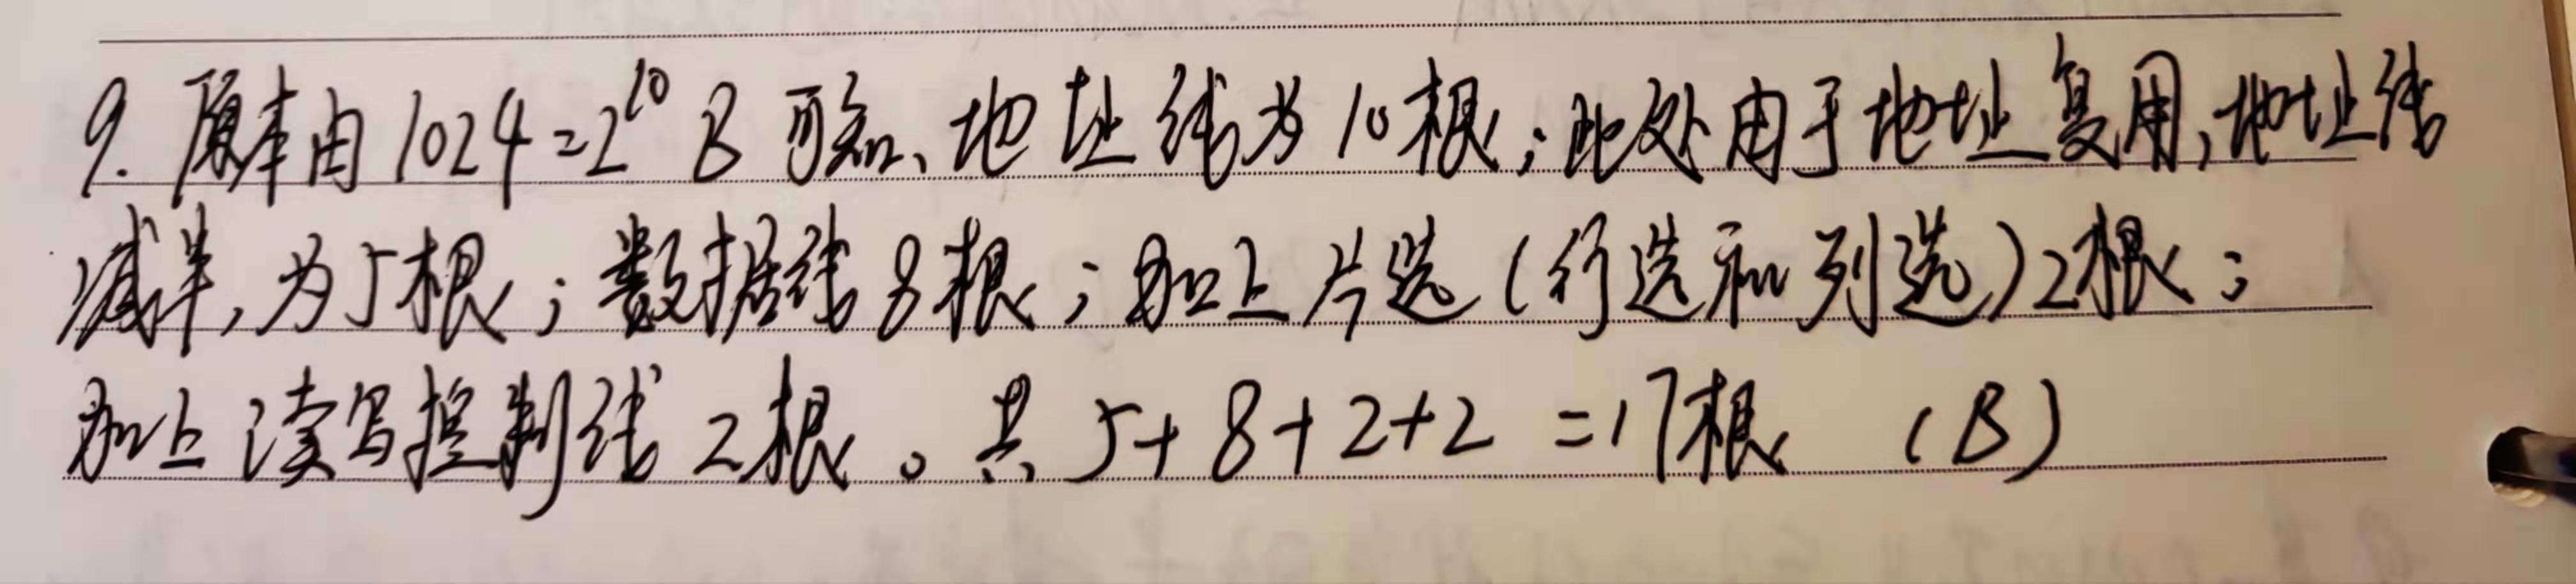 9. 原本由1024=2^10 B 可知、地址线为10根；此处由于地址复用，地址线
减半，为5根；数据线8根；加上片选（行选和列选）2根；
加上读写控制线2根。共5+8+2+2=17根 （B）